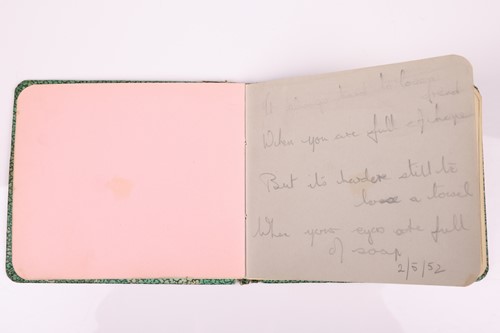 It's always hard to lose a
friend
When you are full of hope
But it's harder still to
lose a towel
When your eyes are full
of soap
2/5/52